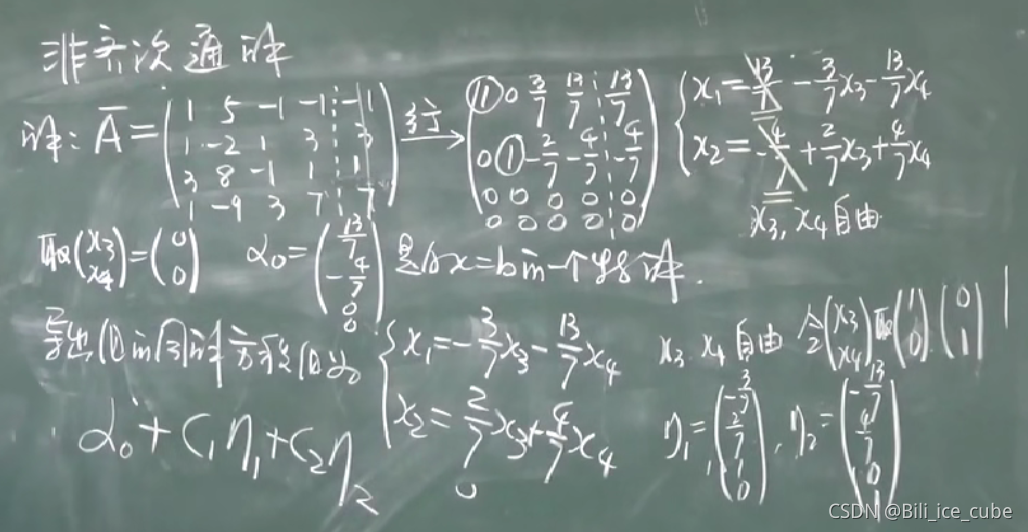 非齐次通解
解: Ā = (1 5 -1 -1 ¦ -1; 1 -2 1 3 ¦ 3; 3 8 -1 1 ¦ 1; 1 -9 3 7 ¦ 7) 行→ (① 0 3/7 13/7 ¦ 13/7; 0 ① -2/7 -4/7 ¦ -4/7; 0 0 0 0 ¦ 0; 0 0 0 0 ¦ 0) { x₁ = 13/7 - 3/7 x₃ - 13/7 x₄
x₂ = -4/7 + 2/7 x₃ + 4/7 x₄
x₃, x₄ 自由
取 (x₃; x₄) = (0; 0) α₀ = (13/7; -4/7; 0; 0) 是Ax=b的一个特解.
导出组的同解方程组为 { x₁ = -3/7 x₃ - 13/7 x₄
x₂ = 2/7 x₃ + 4/7 x₄
x₃. x₄ 自由 令 (x₃; x₄) 取 (1; 0) (0; 1)
η₁ = (-3/7; 2/7; 1; 0), η₂ = (-13/7; 4/7; 0; 1)
α₀ + c₁η₁ + c₂η₂
0
CSDN @Bili_ice_cube